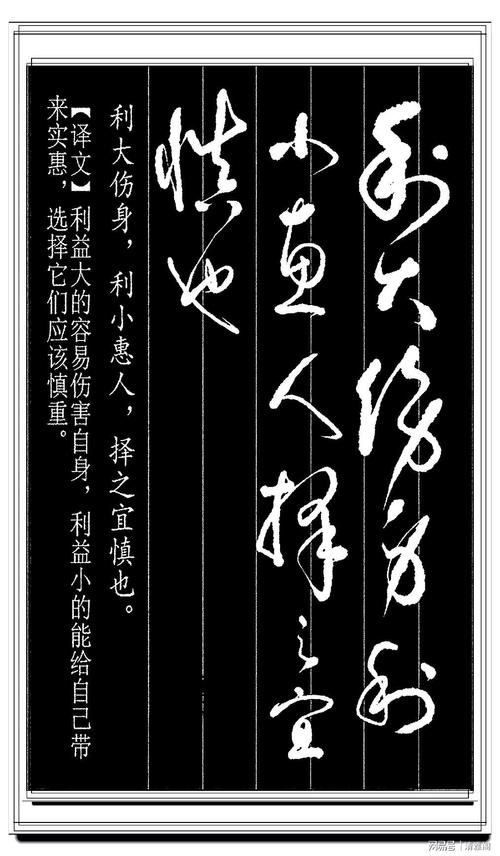 利大伤身利
小惠人择之宜
慎也
利大伤身，利小惠人，择之宜慎也。
【译文】利益大的容易伤害自身，利益小的能给自己带
来实惠，选择它们应该慎重。
网易号 | 清雅阁